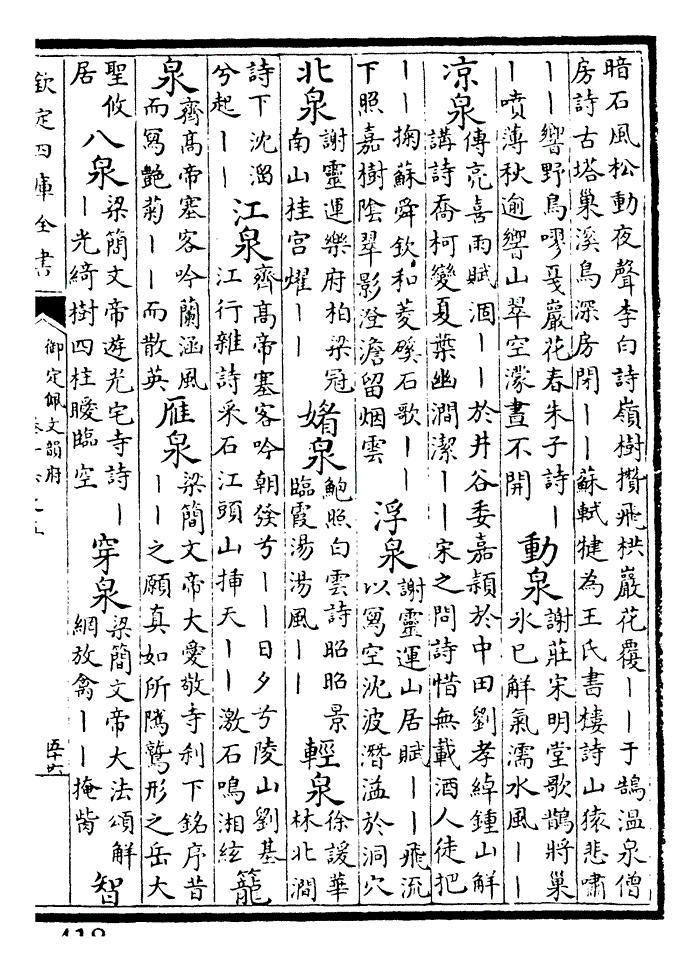 暗石風松動夜聲李白詩嶺樹攢飛栱巖花覆丨丨于鵠溫泉僧
房詩古塔巢溪鳥深房閉丨丨蘇軾犍為王氏書樓詩山猿悲嘯
丨丨響野鳥嘐戛巖花春朱子詩丨
丨噴薄秋逾響山翠空濛晝不開
動泉
謝莊宋明堂歌鵲將巢
氷已解氣濡水風丨丨
凉泉
傅亮喜雨賦涸丨丨於井谷委嘉頴於中田劉孝綽鍾山解
講詩喬柯變夏葉幽澗潔丨丨宋之問詩惜無載酒人徒把
丨丨掬蘇舜欽和菱磎石歌丨丨
下照嘉樹陰翠影澄澹留烟雲
浮泉
謝靈運山居賦丨丨飛流
以寫空沈波潛溢於洞穴
北泉
謝靈運樂府柏梁冠
南山桂宮燿丨丨
媚泉
鮑照白雲詩昭昭景
臨霞湯湯風丨丨
輕泉
徐諼華
林北澗
詩下沈溜
兮起丨丨
江泉
齊高帝塞客吟朝發兮丨丨日夕兮陵山劉基
江行雜詩采石江頭山揷天丨丨激石鳴湘絃
籠
泉
齊高帝塞客吟蘭涵風
而寫艷菊丨丨而散英
雁泉
梁簡文帝大愛敬寺刹下銘序昔
丨丨之願真如所隲鷲形之岳大
聖攸
居
八泉
梁簡文帝遊光宅寺詩丨
丨光綺樹四柱曖臨空
穿泉
梁簡文帝大法頌解
網放禽丨丨掩胔
智
欽定四庫全書
御定佩文韻府
五十六